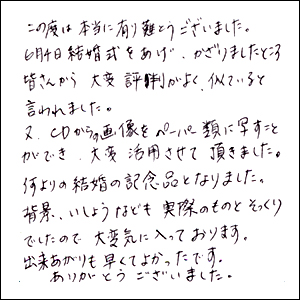 この度は本当に有り難とうございました。
6月4日結婚式をあげ、かざりましたところ
皆さんから 大変 評判がよく、似ていると
言われました。
又、CDからの画像を ペーパー類に写すこと
ができ、大変 活用させて 頂きました。
何よりの結婚の記念品となりました。
背景、いしょうなども 実際のものと そっくり
でしたので 大変気に入っております。
出来あがりも 早くてよかったです。
ありがとう ございました。